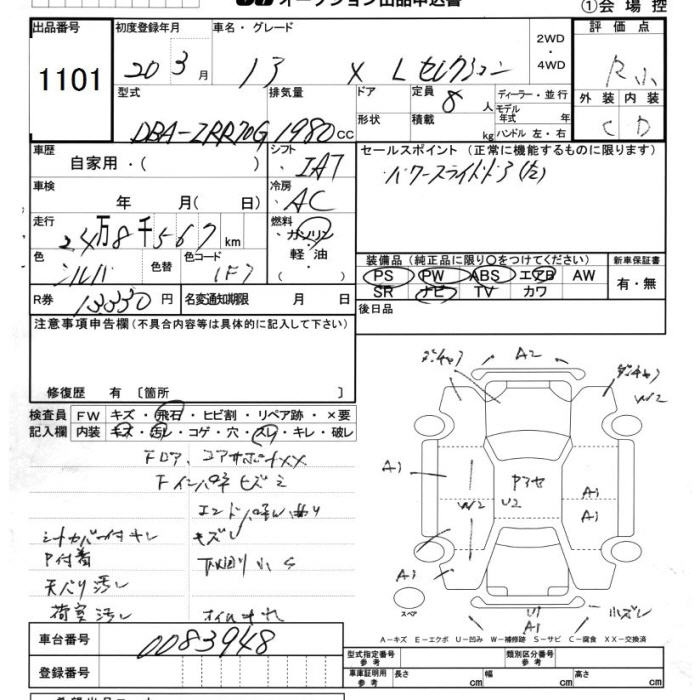 オークション出品申込書
①会場控
出品番号
1101
初度登録年月
20 3 月
車名・グレード
13 X Lセレクション
2WD
・
4WD
評価点
R小
外装 内装
C D
型式
DBA-ZRR70G
排気量
1980 CC
ドア
形状
定員
8 人
積載
kg
ディーラー・並行
モデル
年式 年
ハンドル 左・右
車歴
自家用・( )
シフト
・IAT
セールスポイント (正常に機能するものに限ります)
・パワースライドドア(左)
車検
年 月( 日)
冷房
・AC
走行
24万8千567 km
燃料
・ガソリン
・軽油
・( )
色
シルバ
色替
色コード
1F7
装備品 (純正品に限り〇をつけてください)
PS PW ABS エアB AW
SR ナビ TV カワ
新車保証書
有・無
R券
13330 円
名変通知期限 月 日
後日品
注意事項申告欄(不具合内容等は具体的に記入して下さい)
修復歴 有 〔箇所 〕
検査員
記入欄
FW キズ・飛石・ヒビ割・リペア跡・×要
内装 キズ・汚レ・コゲ・穴・スレ・キレ・破レ
Fドア、コアサポートXX
シートカバー付 キレ
キズレ
P付着
下回り小S
天バリ汚レ
荷室汚レ
ダンキャフ
A2
ダンキャフ
W2
A1
W2
U2
A1
A1
A1
スペア
U1
A1
小ズレ
A-キズ E-エクボ U-凹み W-補修跡 S-サビ C-腐食 XX-交換済
車台番号
0083948
登録番号
型式指定番号
参考
類別区分番号
参考
車庫証明用
参考
長さ cm
幅 cm
高さ cm